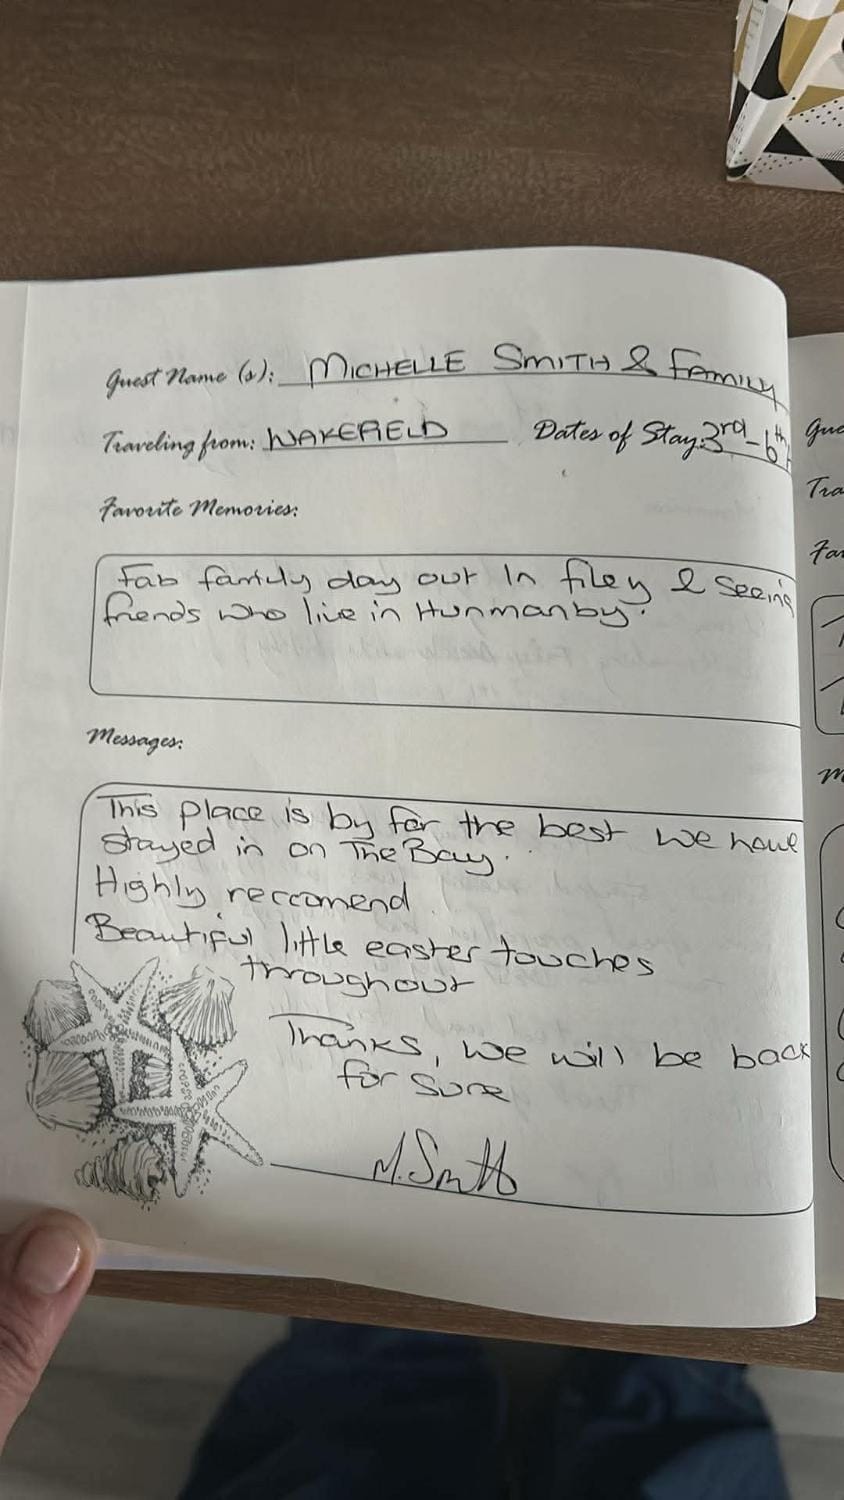 Guest Name (s): MICHELLE SMITH & FAMILY
Traveling from: WAKEFIELD Dates of Stay: 3rd - 6th
Favorite Memories:
Fab family day out In filey & seeing
friends who live in Hunmanby.
Messages:
This place is by far the best we have
stayed in on The Bay.
Highly reccomend.
Beautiful little easter touches
throughout
Thanks, we will be back
for sure
M.Smith
Gue
Tra
Fa
M